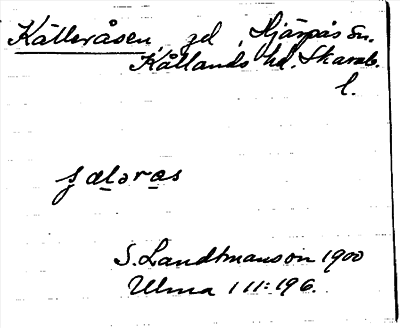 Källeråsen, gd, Hjärpås sn.
Kållands hd. Skarab.
l.
S. Landtmanson 1900
Ulma 111:196.